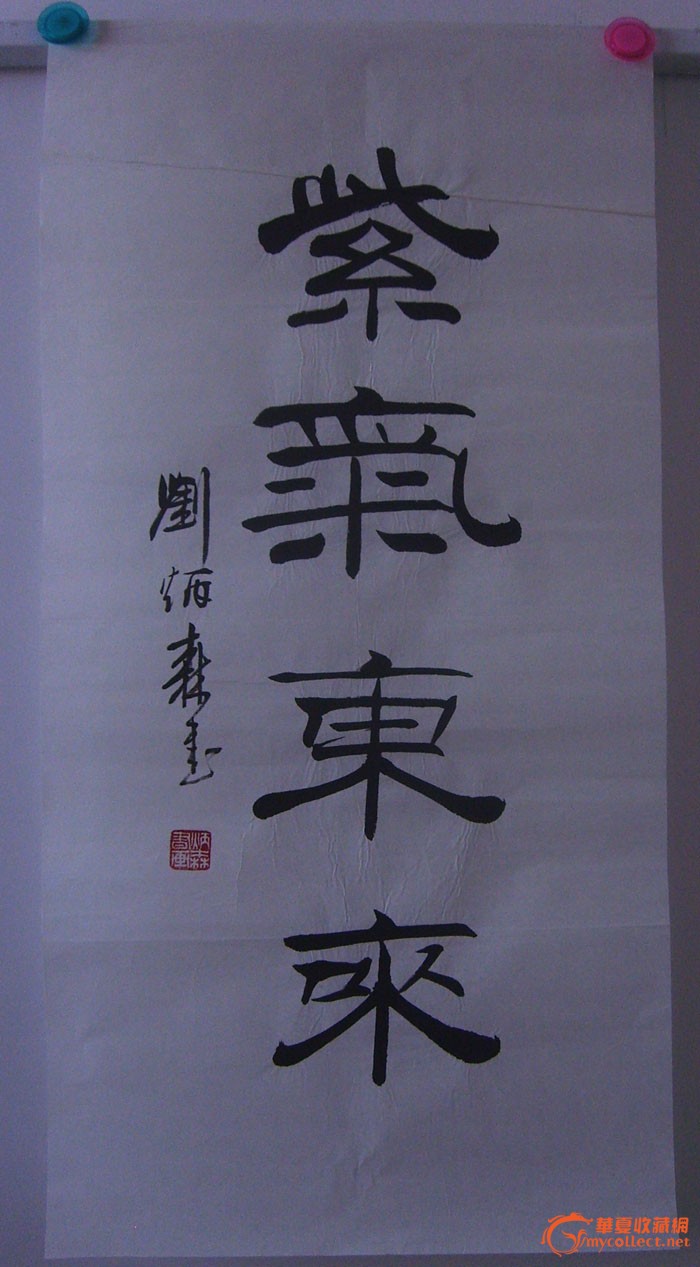 紫氣東來
劉炳森書
炳森
書畫
華夏收藏網
mycollect.net